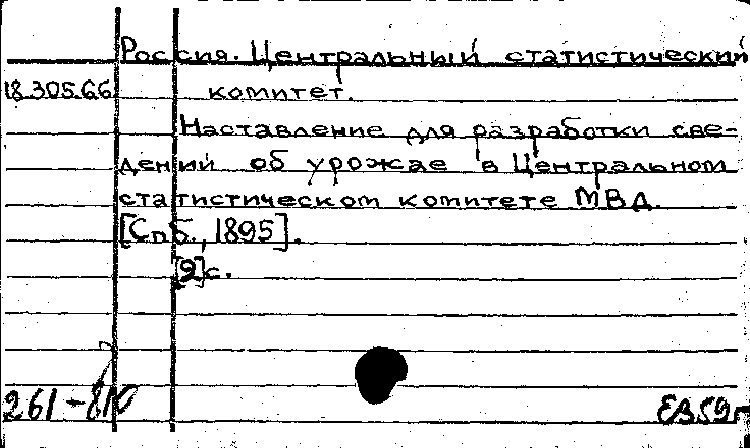 Россия. Центральный статистический
18.305.66 комитет.
Наставление для разработки све-
дений об урожае в Центральном
статистическом комитете МВД.
[Спб., 1895].
[2]с.
261-810
ЕВ59г